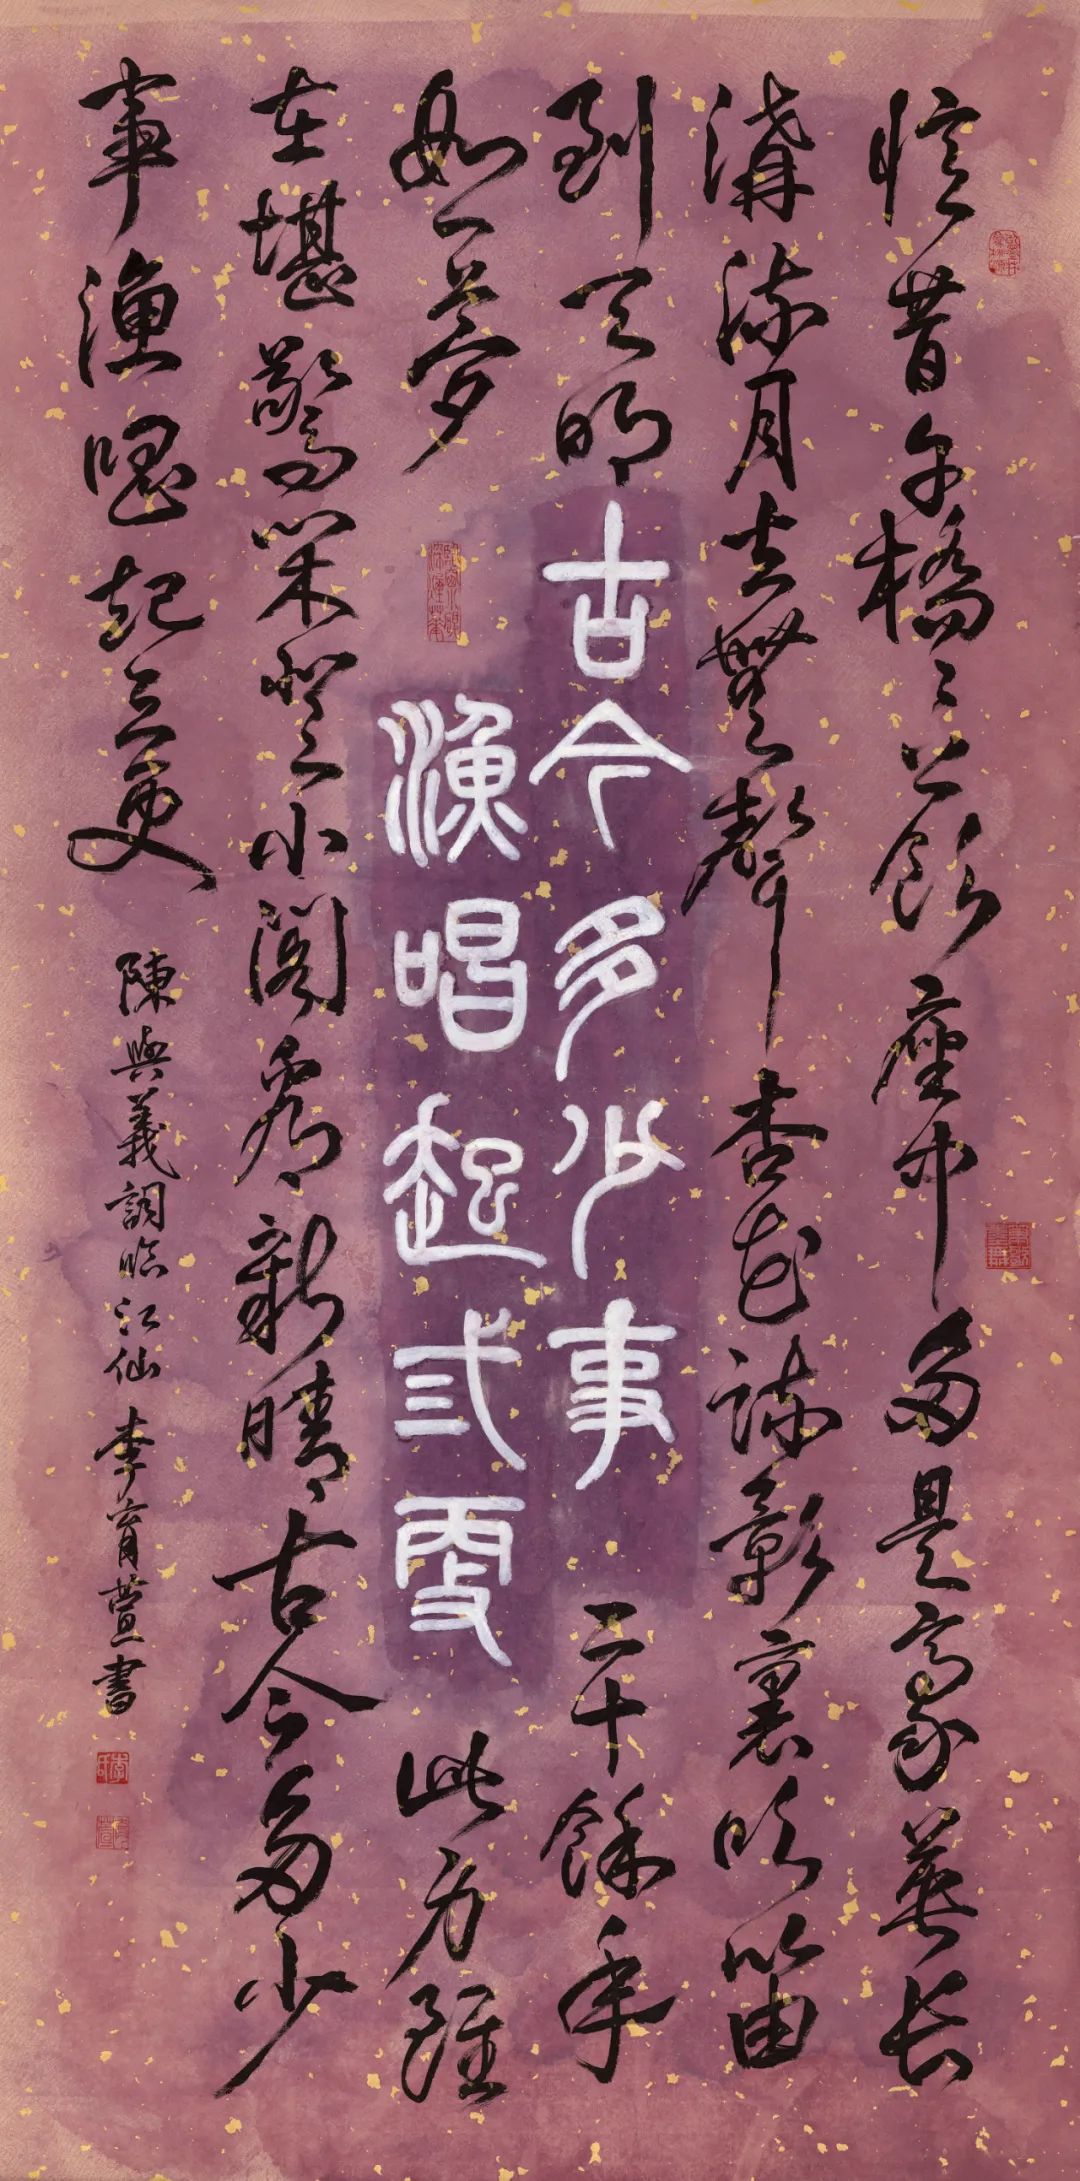 憶昔午橋〻上飲座中多是豪英長
溝流月去無聲杏花疎影裏吹笛
到天明
二十餘年
如一夢
此身雖
在堪驚閑登小閣看新晴古今多少
事漁唱起三更
古今多少事
漁唱起弎更
陳與義詞臨江仙 李育萱書